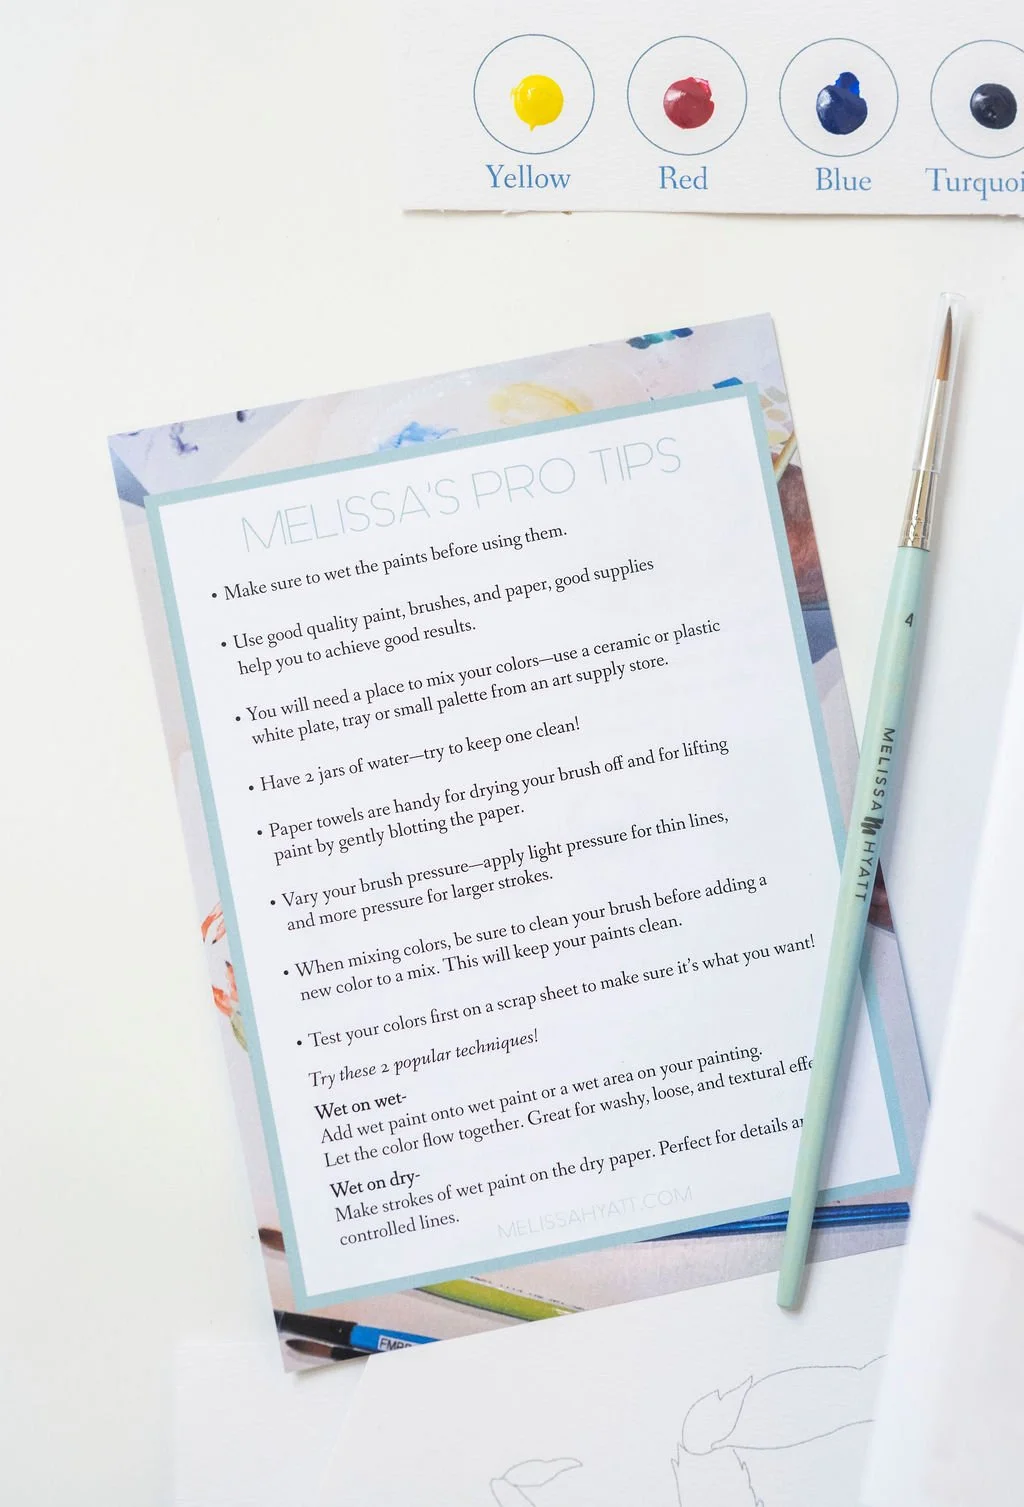 Yellow
Red
Blue
MELISSA'S PRO TIPS
• Make sure to wet the paints before using them.
• Use good quality paint, brushes, and paper, good supplies
help you to achieve good results.
• You will need a place to mix your colors—use a ceramic or plastic
white plate, tray or small palette from an art supply store.
• Have 2 jars of water—try to keep one clean!
• Paper towels are handy for drying your brush off and for lifting
paint by gently blotting the paper.
• Vary your brush pressure—apply light pressure for thin lines,
and more pressure for larger strokes.
• When mixing colors, be sure to clean your brush before adding a
new color to a mix. This will keep your paints clean.
• Test your colors first on a scrap sheet to make sure it's what you want!
Try these 2 popular techniques!
Wet on wet-
Add wet paint onto wet paint or a wet area on your painting.
Let the color flow together. Great for washy, loose, and textural
Wet on dry-
Make strokes of wet paint on the dry paper. Perfect for details
controlled lines.
MELISSAHYATT.COM
4
MELISSA M HYATT